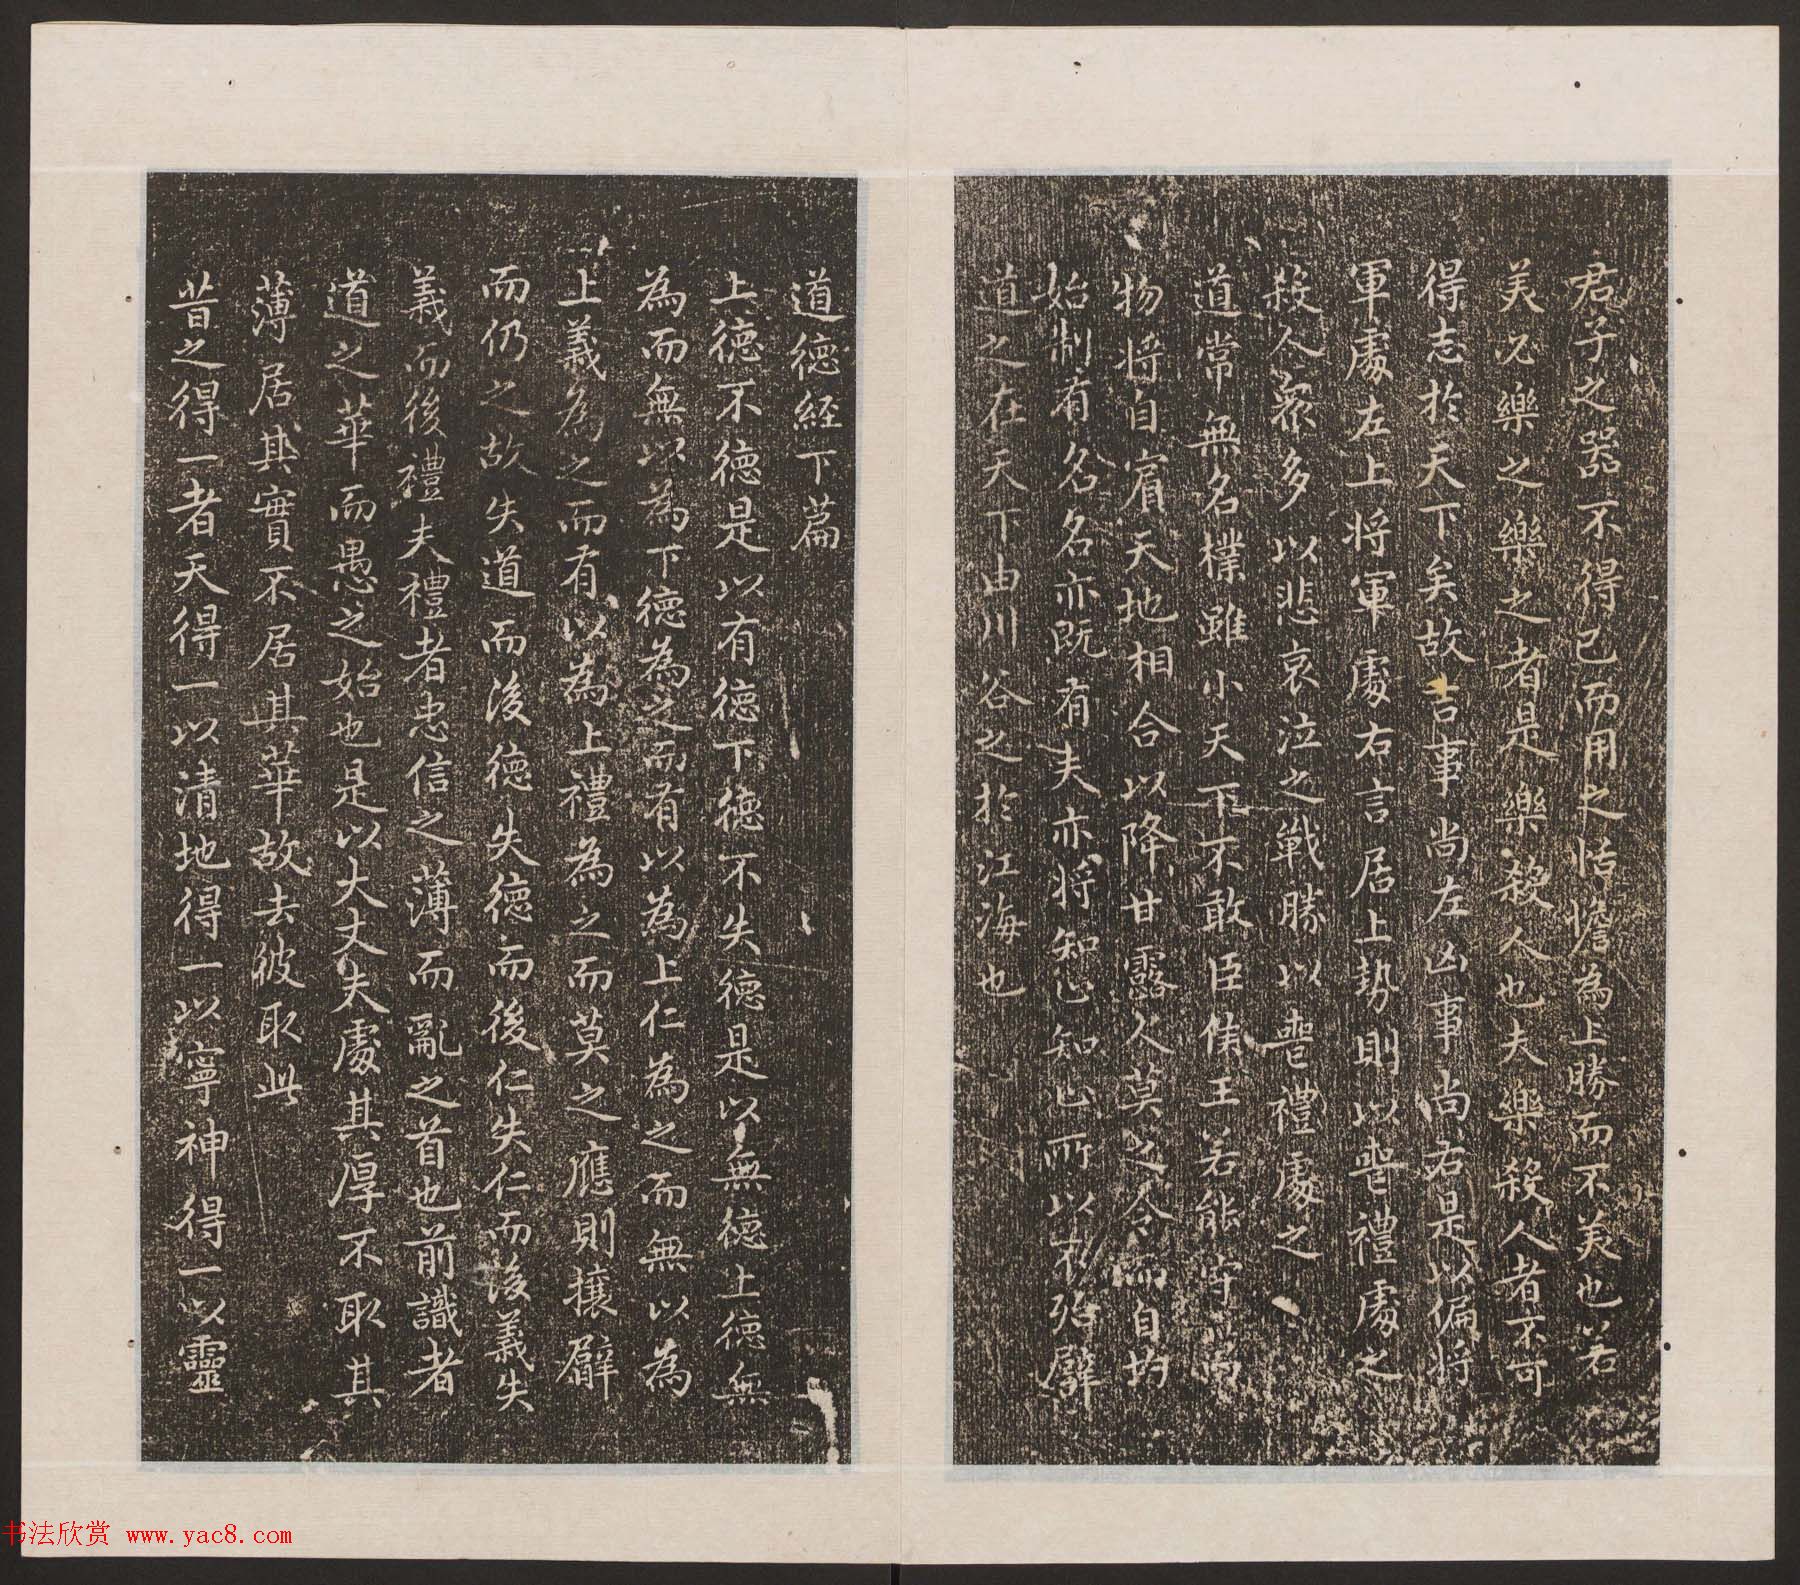 君子之器不得已而用之恬憺為上勝而不美也若
美必樂之樂之者是樂殺人也夫樂殺人者不可
得志於天下矣故吉事尚左凶事尚右是以偏將
軍處左上將軍處右言居上勢則以喪禮處之
殺人衆多以悲哀泣之戰勝以喪禮處之
道常無名樸雖小天下不敢臣侯王若能守萬
物將自賓天地相合以降甘露人莫之令而自均
始制有名名亦既有夫亦將知止知止所以不殆譬
道之在天下由川谷之於江海也
道德經下篇
上德不德是以有德下德不失德是以無德上德無
為而無以為下德為之而有以為上仁為之而無以為
上義為之而有以為上禮為之而莫之應則攘臂
而仍之故失道而後德失德而後仁失仁而後義失
義而後禮夫禮者忠信之薄而亂之首也前識者
道之華而愚之始也是以大丈夫處其厚不取其
薄居其實不居其華故去彼取此
昔之得一者天得一以清地得一以寧神得一以靈
书法欣赏 www.yac8.com